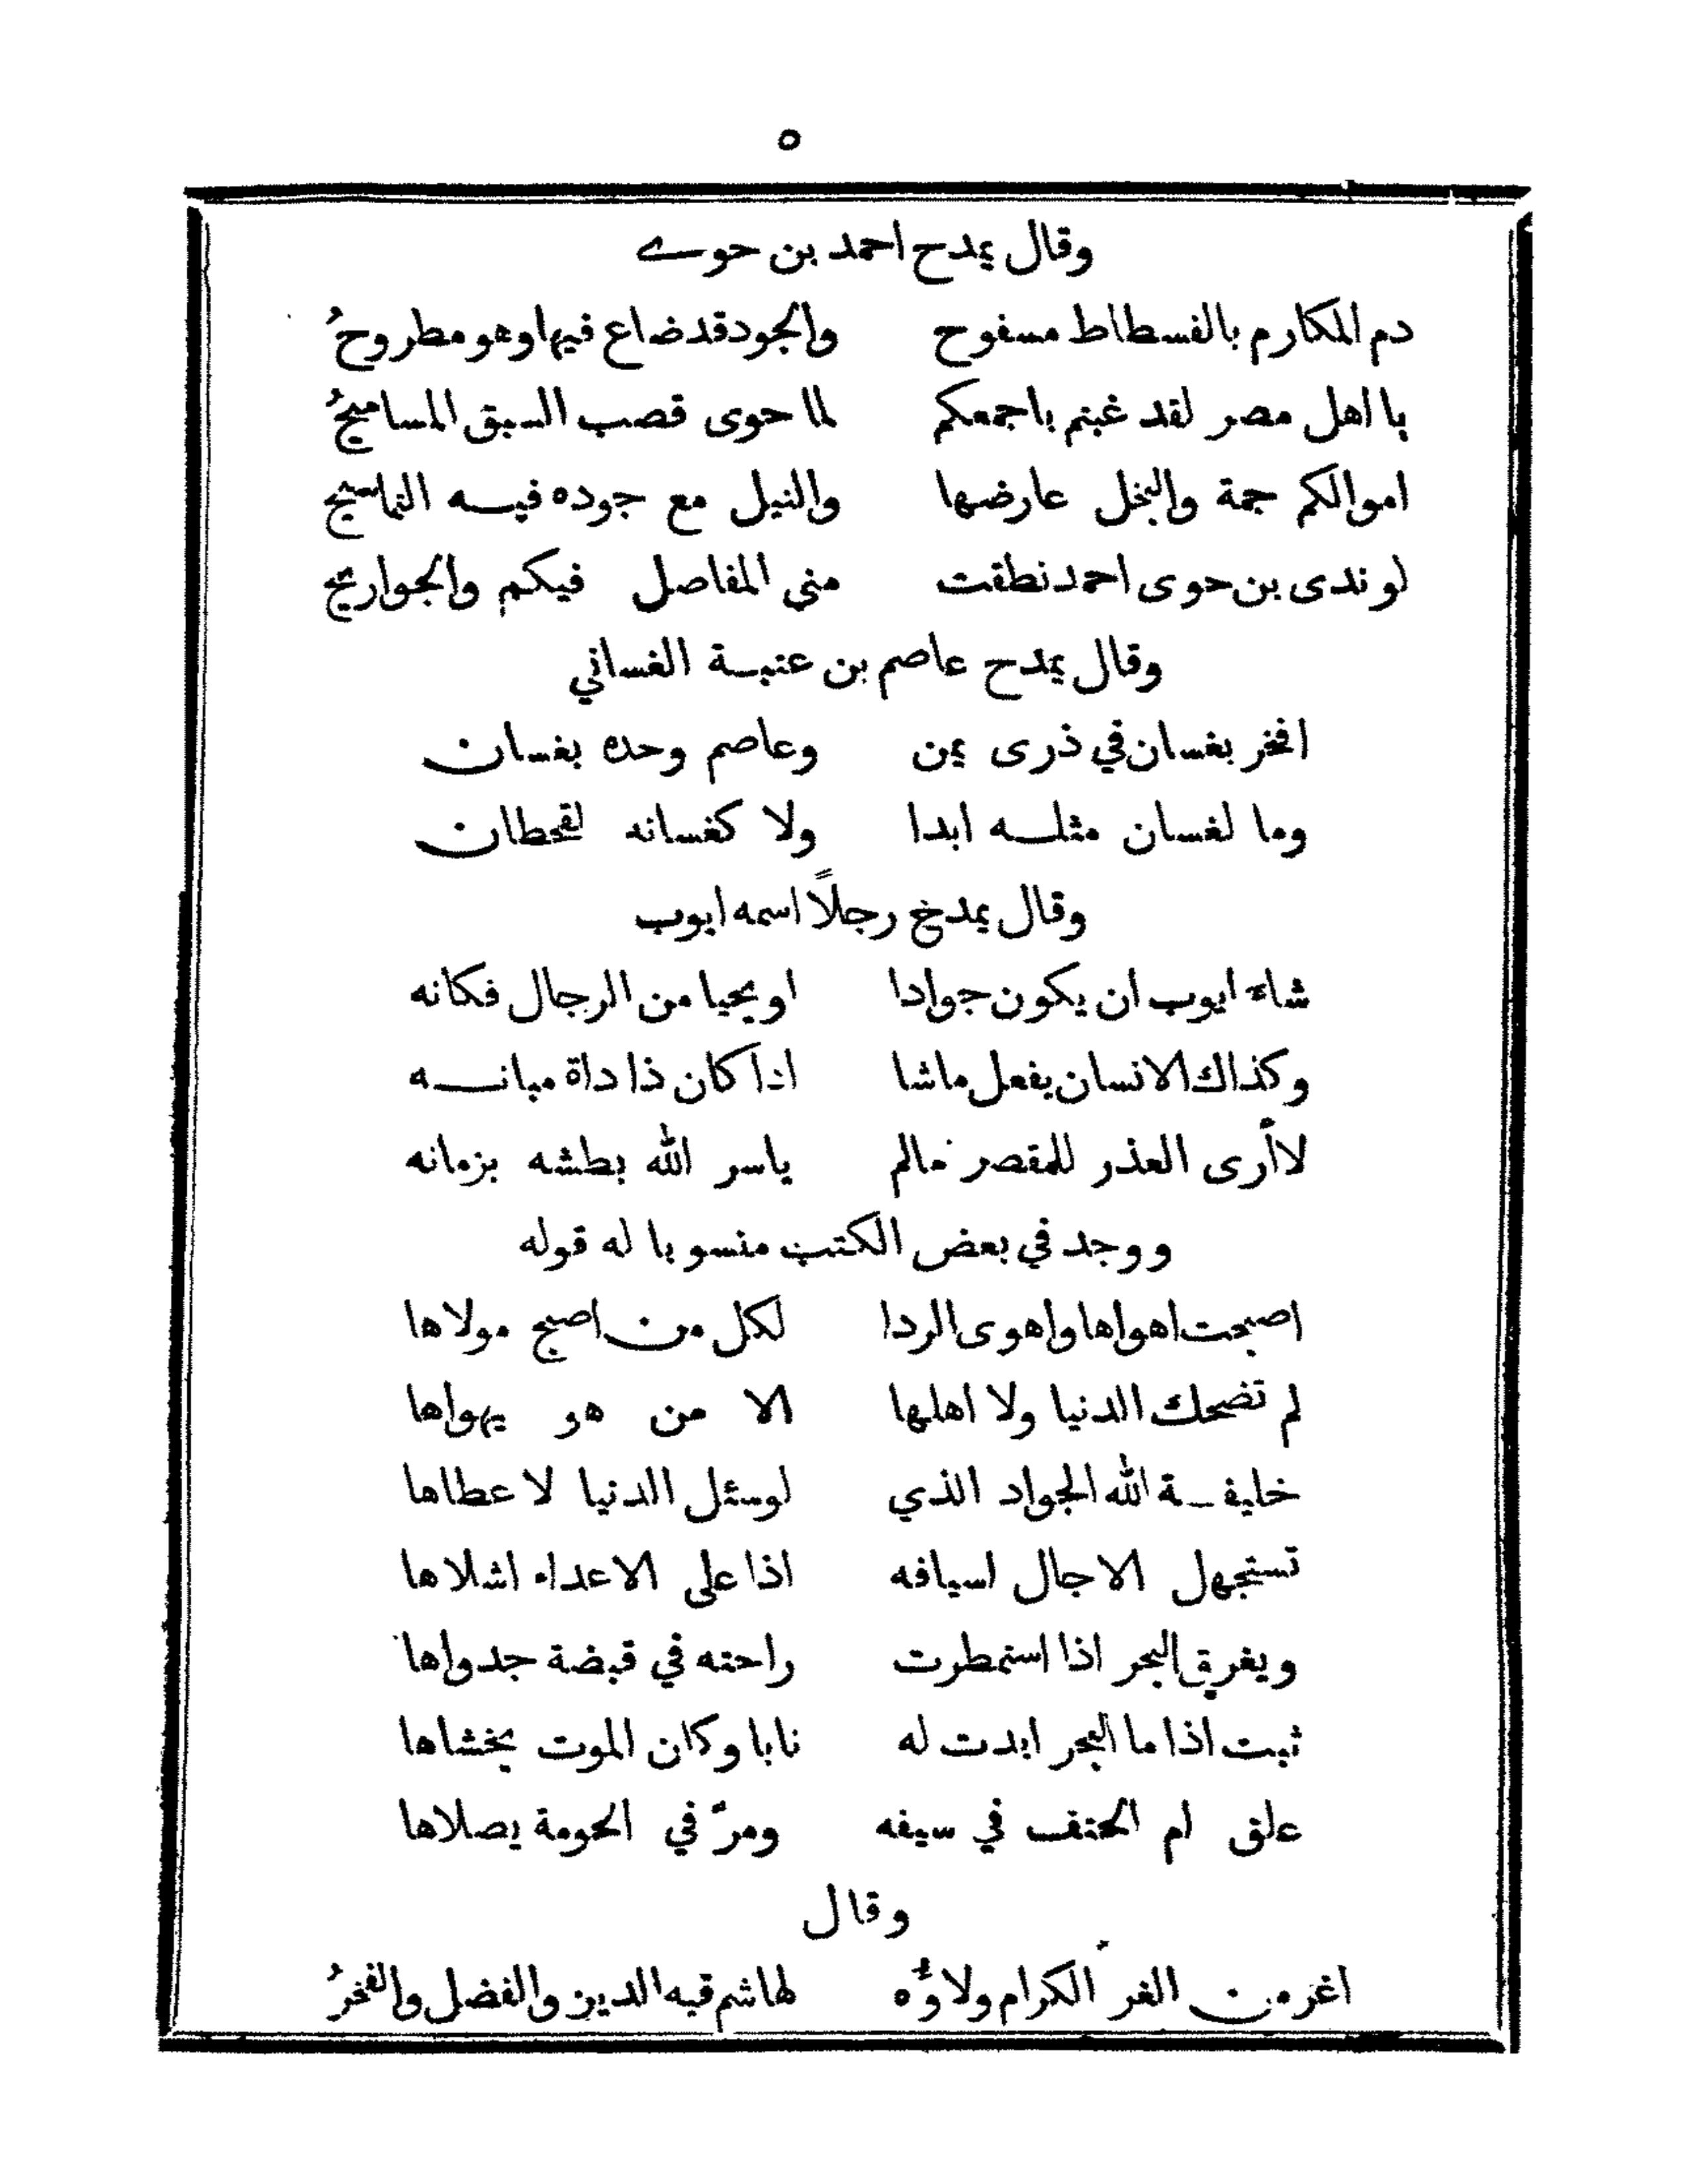 ٥
وقال يمدح احمد بن حوے
دم المكارم بالفسطاط مسفوح والجود قد ضاع فيها وهو مطروحُ
يا اهل مصر لقد غبتم باجمعكم لما حوى قصب السبق المساميحُ
اموالكم جمة والبخل عارضها والنيل مع جوده فيه التماسيح
لو ندى بن حوى احمد نطقت مني المفاصل فيكم والجواريح
وقال يمدح عاصم بن عنبسة الغساني
افخر بغسان في ذرى يمن وعاصم وحده بغسان
وما لغسان مثله ابدا ولا كغسانه لقحطان
وقال يمدخ رجلاً اسمه ايوب
شاء ايوب ان يكون جوادا او يحيا من الرجال فكانه
وكذاك الانسان يفعل ماشا اذا كان ذا داة مبانه
لاأرى العذر للمقصر مالم ياسر الله بطشه بزمانه
ووجد في بعض الكتب منسوبا له قوله
اصبحت اهواها واهوى الردا لكل من اصبح مولاها
لم تضحك الدنيا ولا اهلها الا من هو يهواها
خليفة الله الجواد الذي لوسئل الدنيا لاعطاها
تستجهل الاجال اسيافه اذا على الاعداء اشلاها
ويغرق البحر اذا استمطرت راحته في قبضة جدواها
ثبت اذا ما البحر ابدت له نابا وكان الموت يخشاها
علق ام الحتف في سيفه ومرّ في الحومة يصلاها
وقال
اغر من الغر الكرام ولاؤه لهاشم قبه الدين والفضل والفخرُ